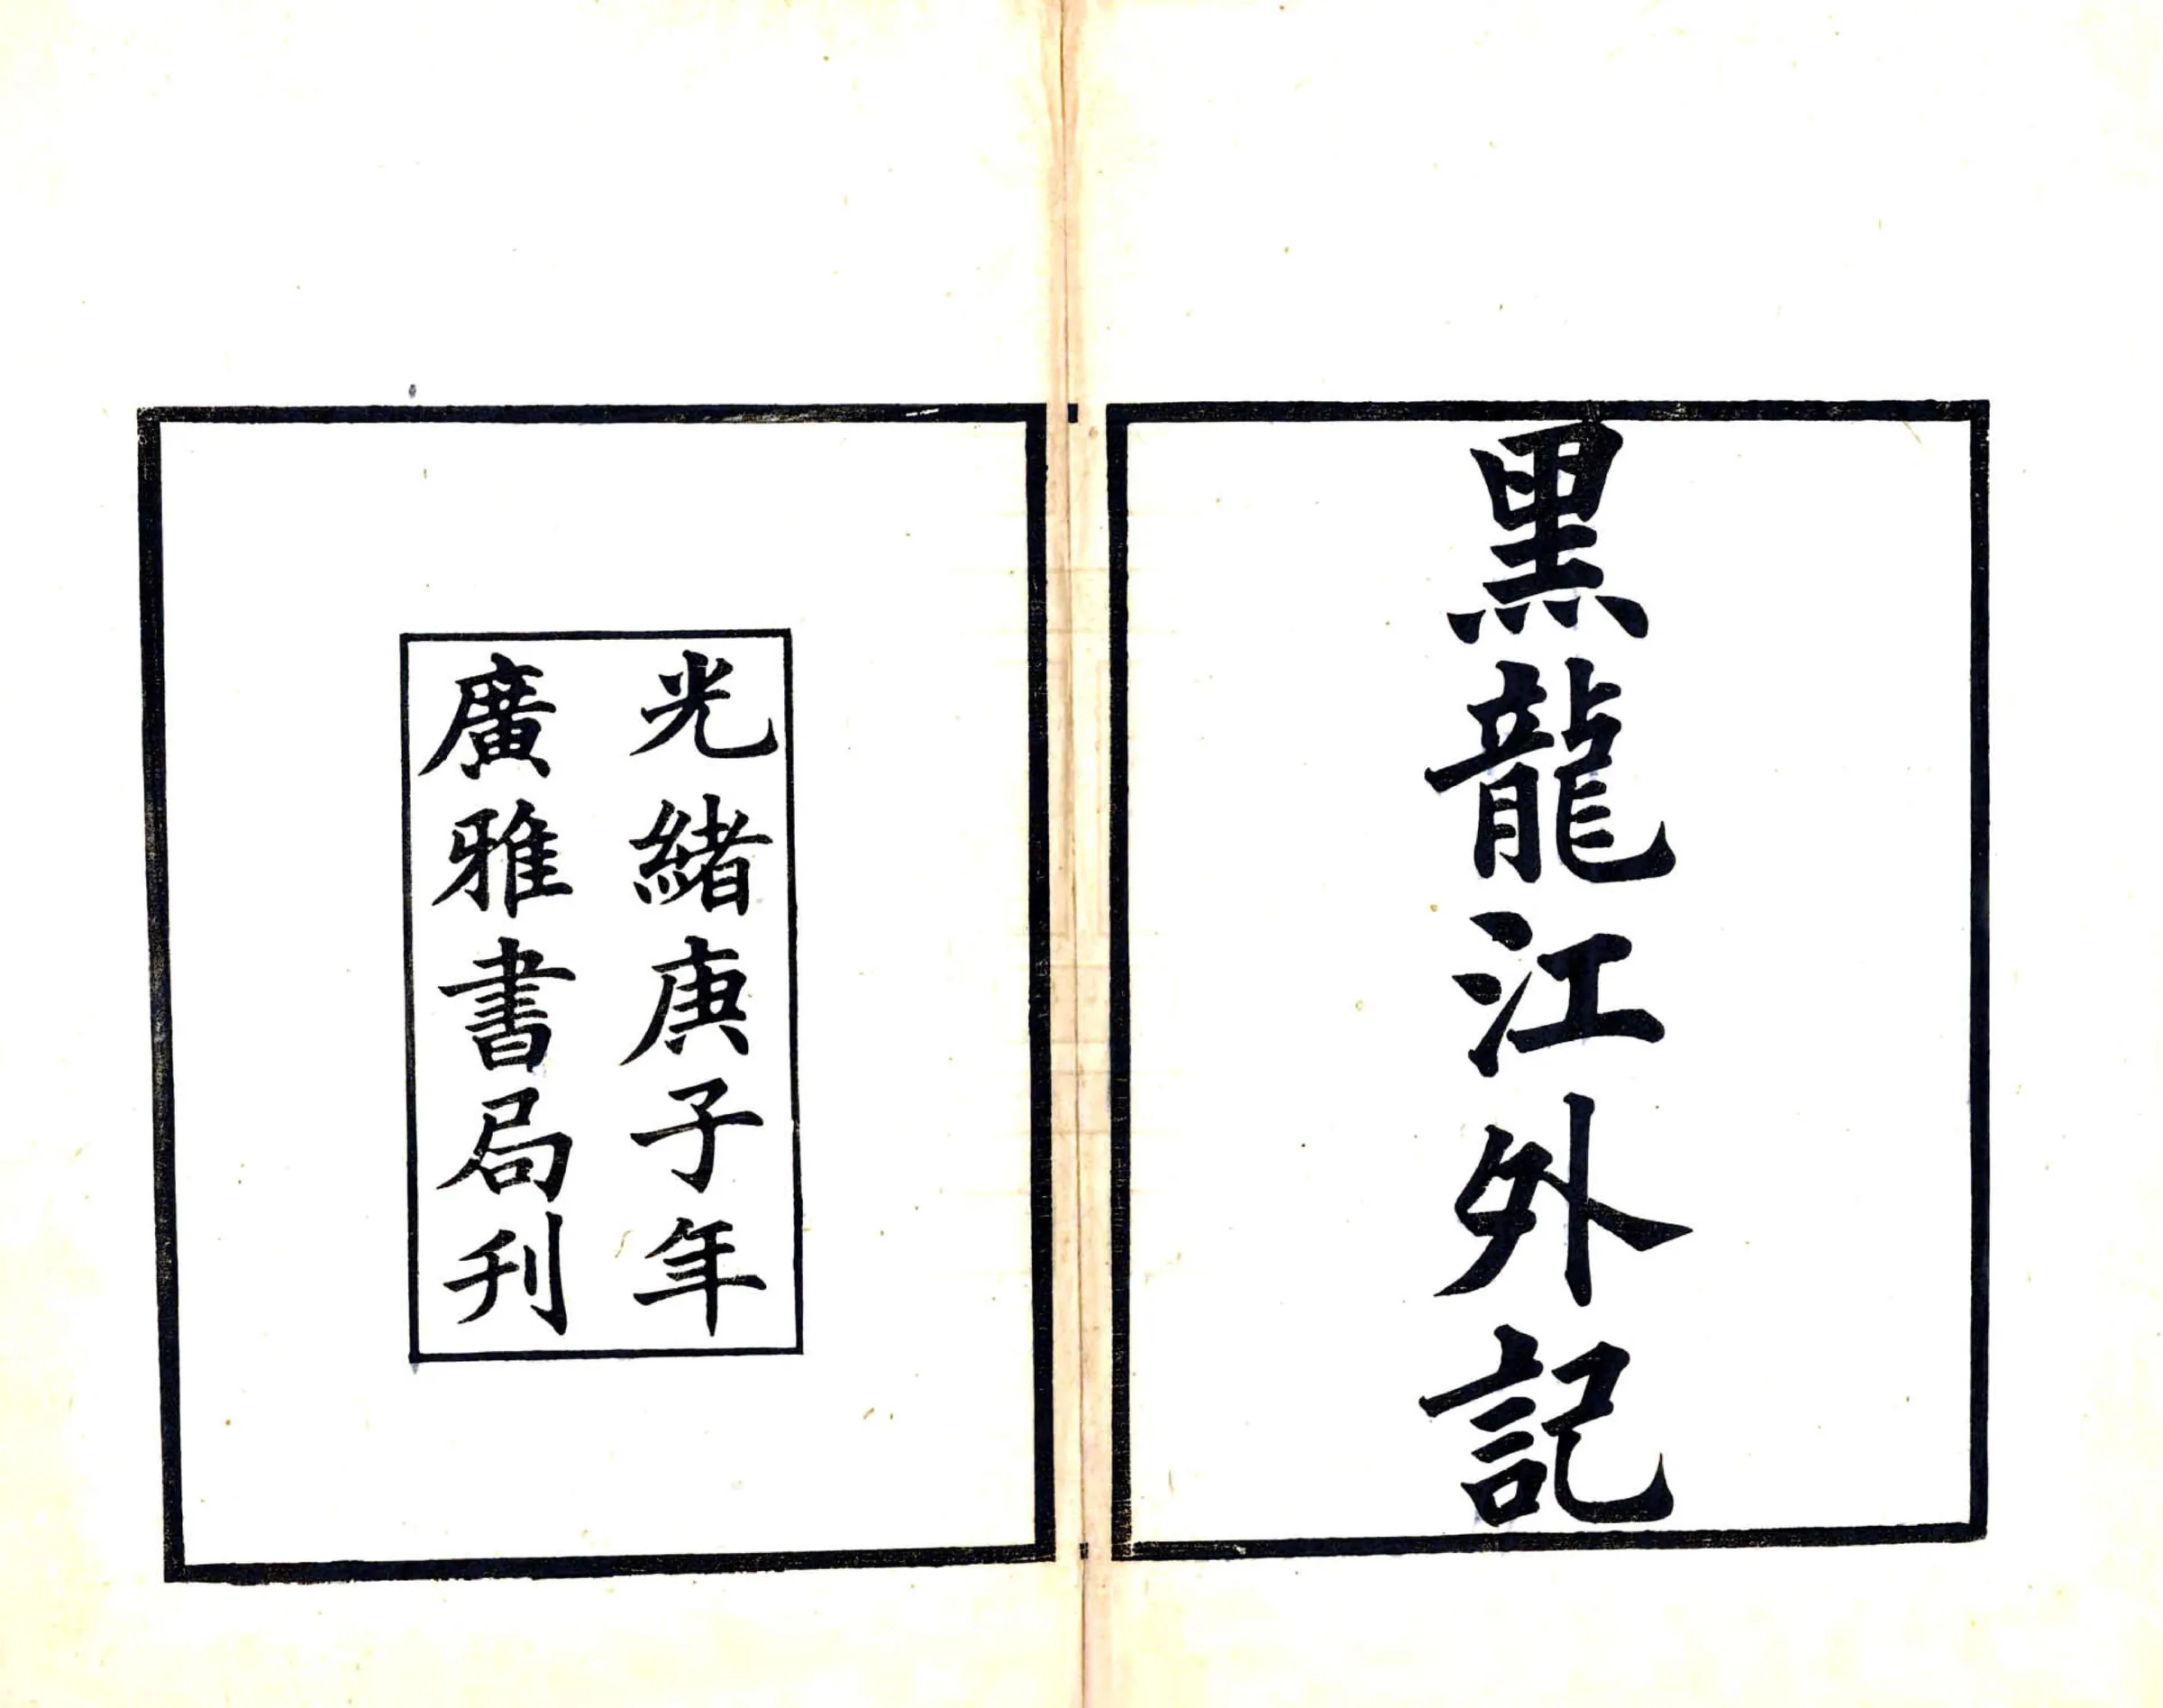 黑龍江外記
光緒庚子年
廣雅書局刊